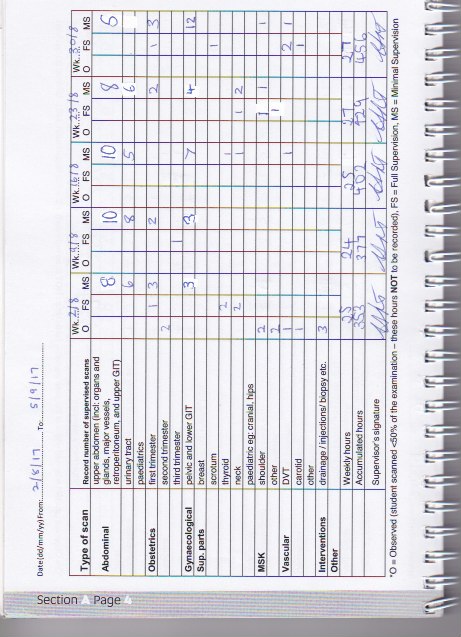 Date(dd/mm/yy) From 2/8/17 To: 5/9/17
Type of scan Record number of supervised scans Wk. 2/8 Wk. 9/8 Wk. 16/8 Wk. 23/8 Wk. 30/8
O FS MS O FS MS O FS MS O FS MS O FS MS
Abdominal upper abdomen (incl: organs and
glands, major vessels,
retroperitoneum, and upper GIT) 8 10 10 8 5
urinary tract 6 8 5 6
paediatrics
Obstetrics first trimester 1 3 2 2 1 3
second trimester 2
third trimester 1
Gynaecological pelvic and lower GIT 3 3 7 4 12
Sup. parts breast
scrotum 1
thyroid 2 1
neck 2 1 1 2
paediatric eg: cranial, hips
MSK shoulder 2 1 1 1
other 2 1
Vascular DVT 1 1 2 1
carotid 1 1
other
Interventions drainage / injections/ biopsy etc. 3
Other
Weekly hours 25 24 25 27 27
Accumulated hours 353 377 402 429 456
Supervisor's signature
*O = Observed (student scanned <50% of the examination – these hours NOT to be recorded), FS = Full Supervision, MS = Minimal Supervision
Section A Page 4